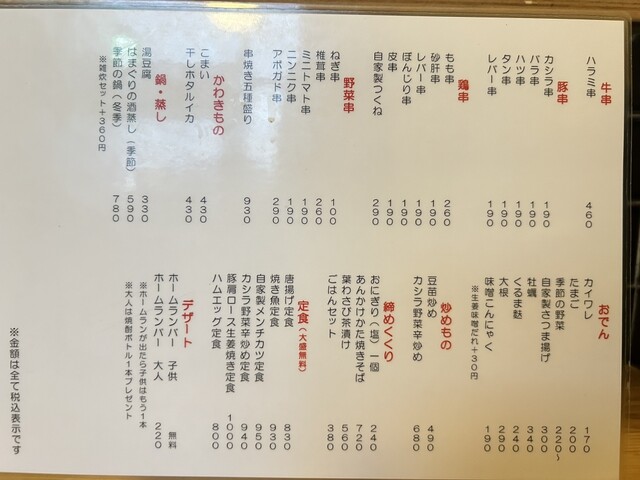 牛串
ハラミ串 460
豚串
カシラ串 190
バラ串 190
ハツ串 190
タン串 190
レバー串 190
鶏串
もも串 260
砂肝串 190
レバー串 190
ぼんじり串 190
皮串 190
自家製つくね 290
野菜串
ねぎ串 100
椎茸串 260
ミニトマト串 190
ニンニク串 190
アボガド串 290
串焼き五種盛り 930
かわきもの
こまい 430
干しホタルイカ 430
鍋・蒸し
湯豆腐 330
はまぐりの酒蒸し（季節） 590
季節の鍋（冬季） 780
※雑炊セット+360円
おでん
カイワレ 170
たまご 200
季節の野菜 220～
自家製さつま揚げ 300
牡蠣 340
くるま麩 240
大根 290
味噌こんにゃく 190
※生姜味噌だれ+30円
炒めもの
豆苗炒め 490
カシラ野菜辛炒め 680
締めくくり
おにぎり（塩）一個 240
あんかけかた焼きそば 720
葉わさび茶漬け 560
ごはんセット 380
定食（大盛無料）
唐揚げ定食 830
焼き魚定食 930
自家製メンチカツ定食 950
カシラ野菜辛炒め定食 940
豚肩ロース生姜焼き定食 1000
ハムエッグ定食 800
デザート
ホームランバー 子供 無料
ホームランバー 大人 220
※ホームランが出たら子供はもう1本
※大人は焼酎ボトル1本プレゼント
※金額は全て税込表示です